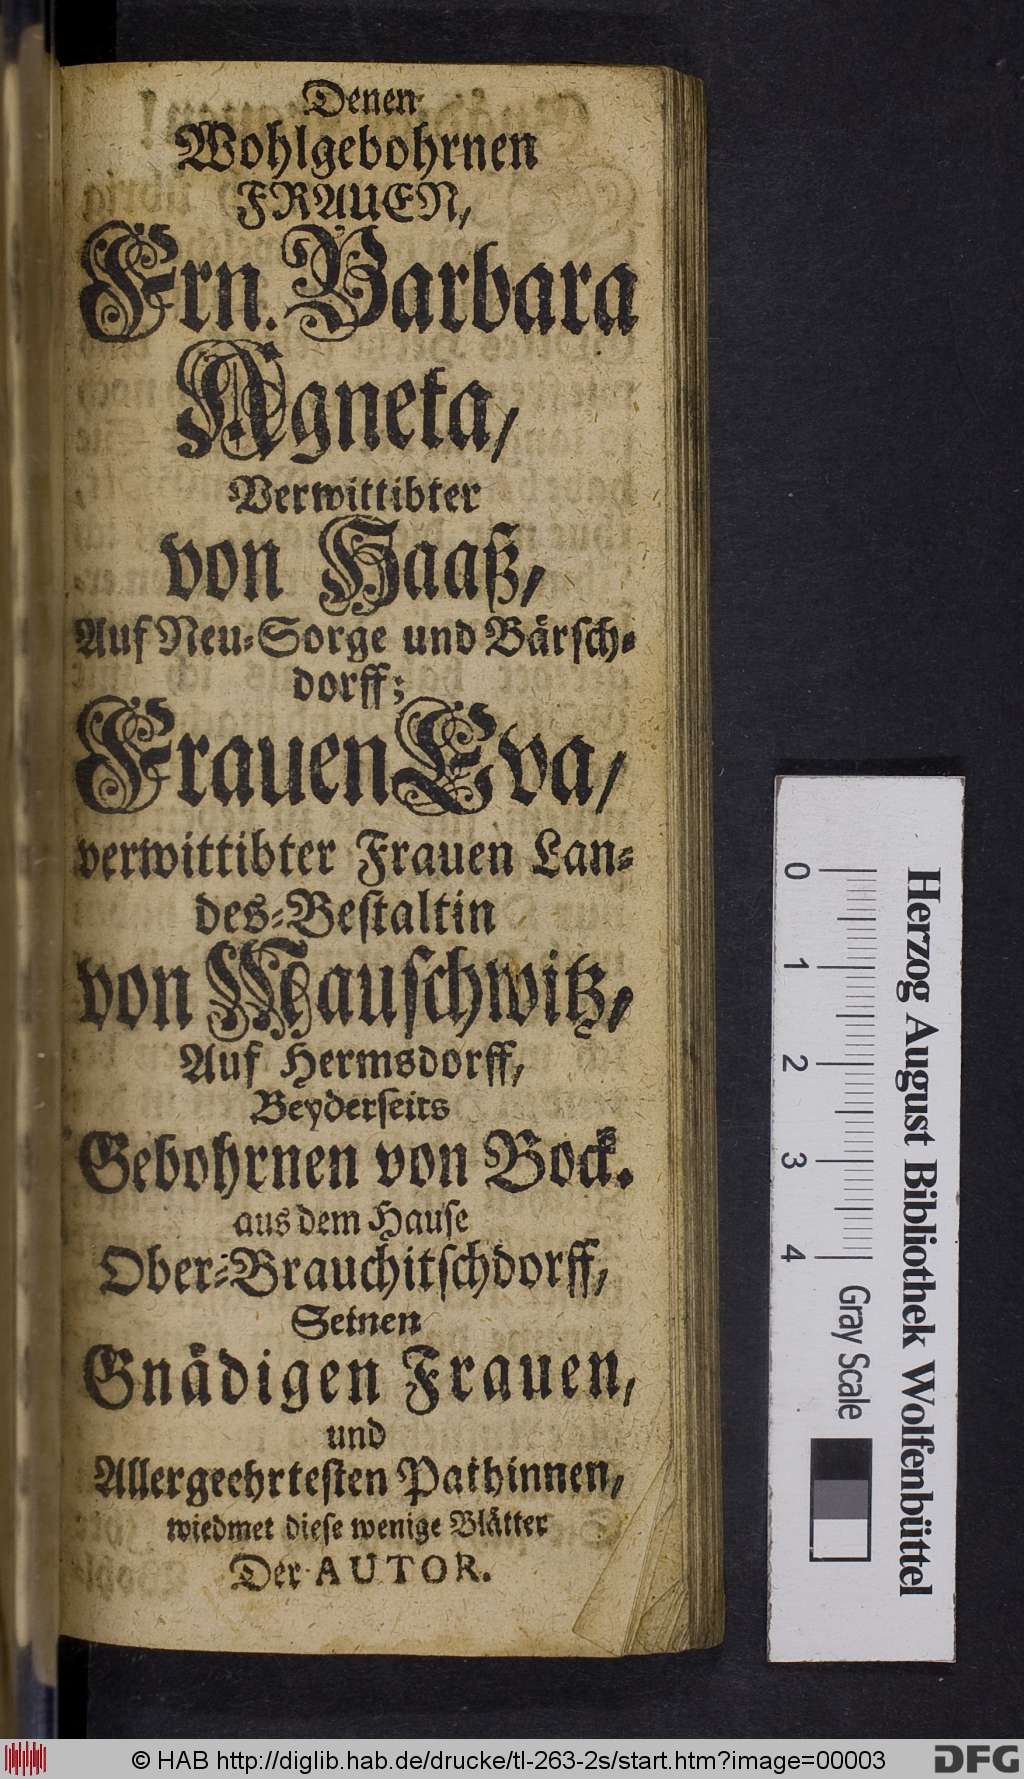 Denen
Wohlgebohrnen
FRAUEN,
Frn. Barbara
Agneta,
Verwittibter
von Haaß,
Auf Neu-Sorge und Bärsch-
dorff;
Frauen Eva,
verwittibter Frauen Lan-
des-Bestaltin
von Mauschwitz,
Auf Hermsdorff,
Beyderseits
Gebohrnen von Bock.
aus dem Hause
Ober-Brauchitschdorff,
Seinen
Gnädigen Frauen,
und
Allergeehrtesten Pathinnen,
wiedmet diese wenige Blätter
Der AUTOR.
Herzog August Bibliothek Wolfenbüttel
0 1 2 3 4 Gray Scale
© HAB http://diglib.hab.de/drucke/tl-263-2s/start.htm?image=00003
DFG